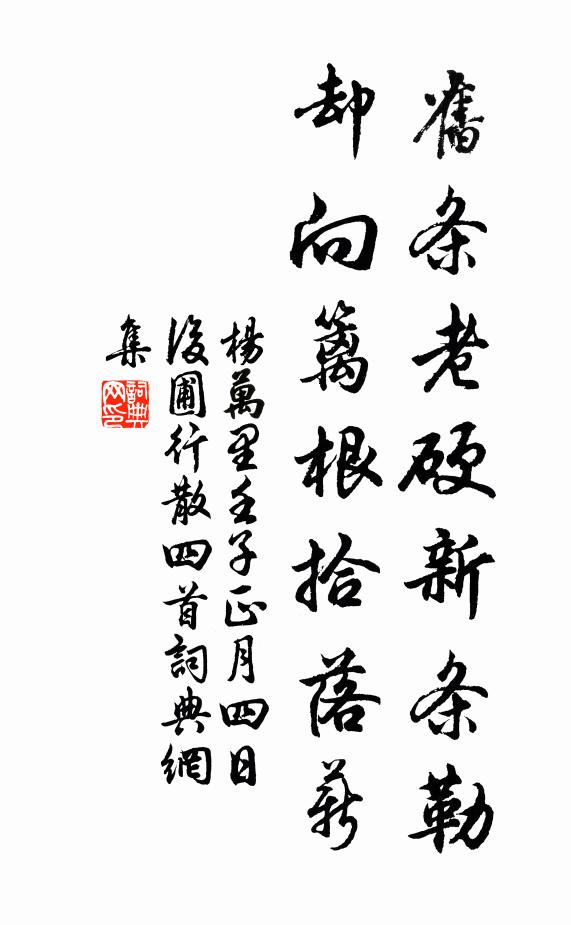 舊条老硬新条勒
却向籬根拾落薪
楊萬里壬子正月四日
後圃行散四首詞典網
集
詞典网印